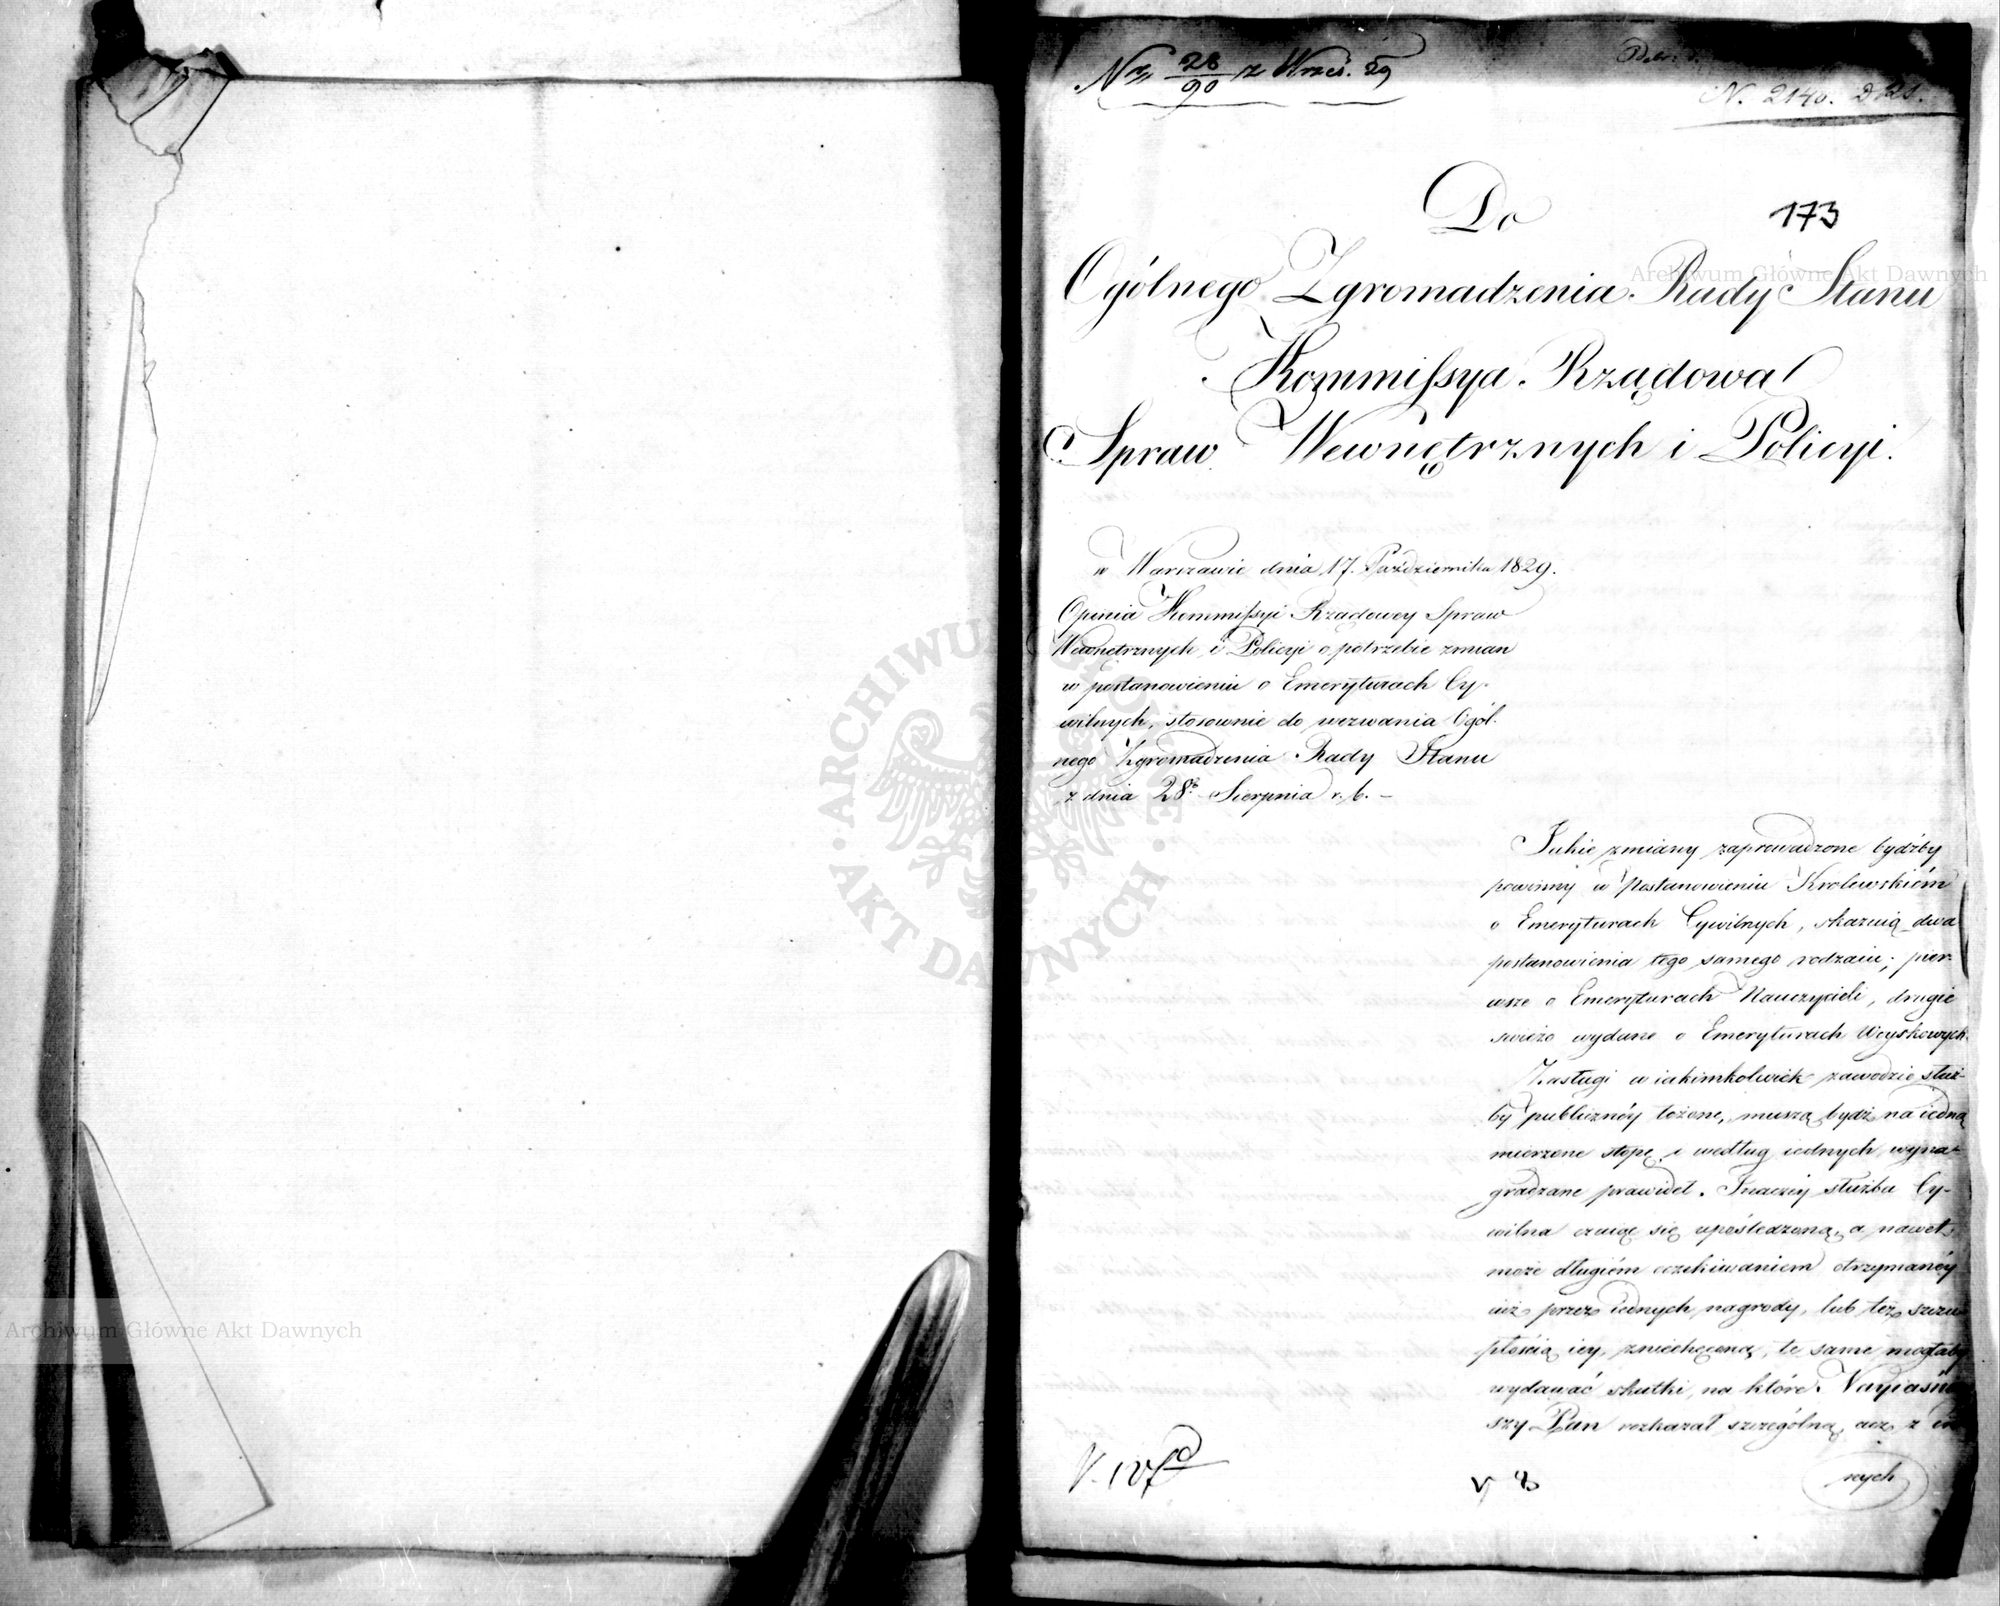 Nr 28/90 z Wrześ. 29
N. 2140.
173
Do
Ogólnego Zgromadzenia Rady Stanu
Kommissya Rządowa
Spraw Wewnętrznych i Policyi.
w Warszawie dnia 17. Października 1829.
Opinia Kommissyi Rządowey Spraw
Wewnętrznych i Policyi o potrzebie zmian
w postanowieniu o Emeryturach Cy-
wilnych, stosownie do wezwania Ogól-
nego Zgromadzenia Rady Stanu
z dnia 28º Sierpnia r. b. –
Jakie zmiany zaprowadzone bydźby
powinny w Postanowieniu Krolewskiém
o Emeryturach Cywilnych, skazuią dwa
postanowienia tego samego rodzaiu; pier-
wsze o Emeryturach Nauczycieli, drugie
swieżo wydane o Emeryturach Woyskowych.
Zasługi w iakimkolwiek zawodzie służ-
by publicznéy łożone, muszą bydź na iedną
mierzone stopę i według iednych wyna-
gradzane prawideł. Inaczéy służba Cy-
wilna czuiąc się upośledzoną, a nawet
może długiém oczekiwaniem otrzymanéy
iuż przez iednych nagrody, lub też szczu-
płością iey, zniechęconą, te same mogłaby
wydawać skutki, na które Nayiaśniey-
szy Pan rozkazał szczególną, acz z in-
nych
Archiwum Główne Akt Dawnych
Archiwum Główne Akt Dawnych
ARCHIWUM GŁÓWNE AKT DAWNYCH